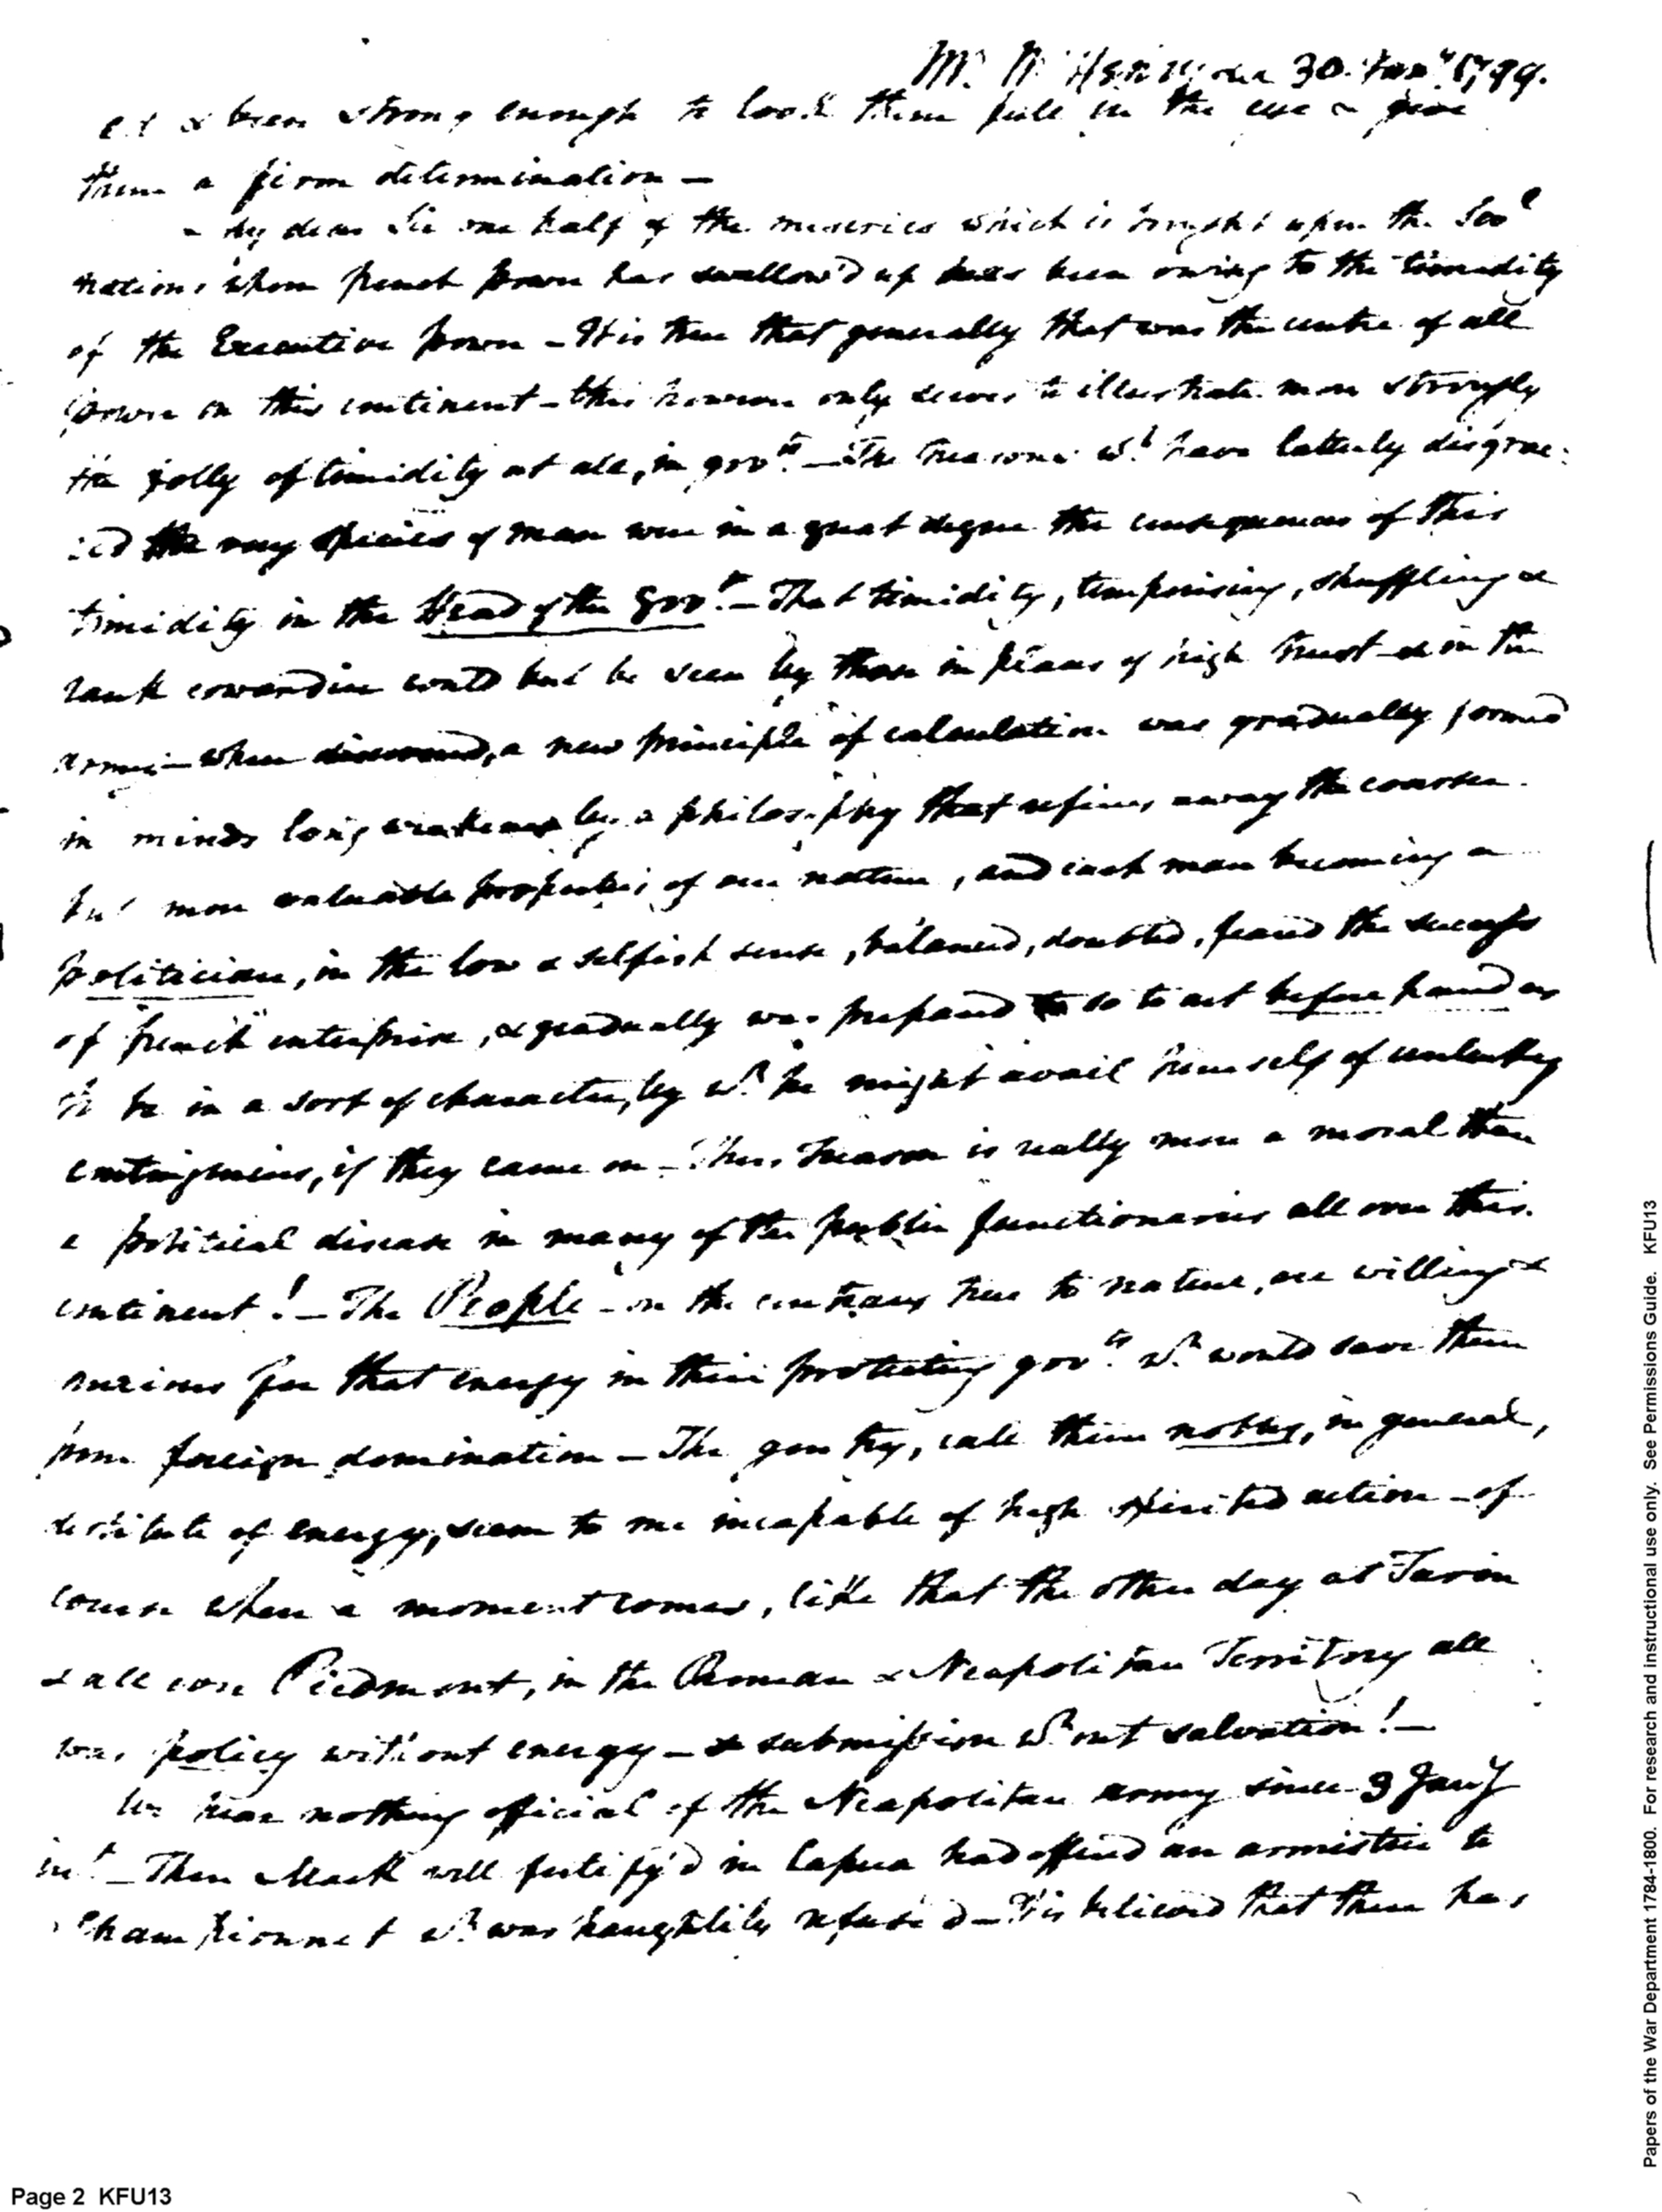 Mr. McHenry 30. Jany 1799.
ed & been strong enough to look them full in the eye & give
them a firm determination —
— My dear Sir one half of the miseries which is brought upon the sevl
nations whom french power has swallow'd up has been owing to the timidity
of the Executive power — It is true that generally that was the centre of all
power on this continent — this however only serves to illustrate more strongly
the folly of timidity at all, in govts. — The treasons wh. have latterly disgrac:
:ed the very species of man were in a great degree the consequences of this
timidity in the Head of the Govt. — That timidity, temporising, shuffling &
rank cowardice could but be seen by those in places of high trust & in the
army — when discovered, a new principle of calculation was gradually formed
in minds long weakened by a philosophy that refines away the coarser
but more valuable properties of our nature, and each man becoming a
politician, in the low & selfish sense, balanced, doubted, feared the success
of "french" enterprise, & gradually was prepared so to act before hand as
to be in a sort of character, by wh. he might avail himself of unlucky
contingencies, if they came on — Thus Treason is really more a moral than
a political disease in many of the public functionaries all over this
continent! — The People — on the contrary true to nature, are willing &
anxious for that energy in their protecting govts. wh. would save them
from foreign domination — The gentry, call them nobles, in general,
destitute of energy, seem to me incapable of high spirited action — of
course when a moment comes, like that the other day at Turin
& all over Piedmont, in the Roman & Neapolitan Territory all
was policy without energy — & submission wh.out salvation! —
We hear nothing official of the Neapolitan army since 3 Jany
int. — Then Mack well fortify'd in Capua had offered an armistice to
Championnet wh. was haughtily refused — It is believed that there has
Papers of the War Department 1784-1800. For research and instructional use only. See Permissions Guide. KFU13
Page 2 KFU13